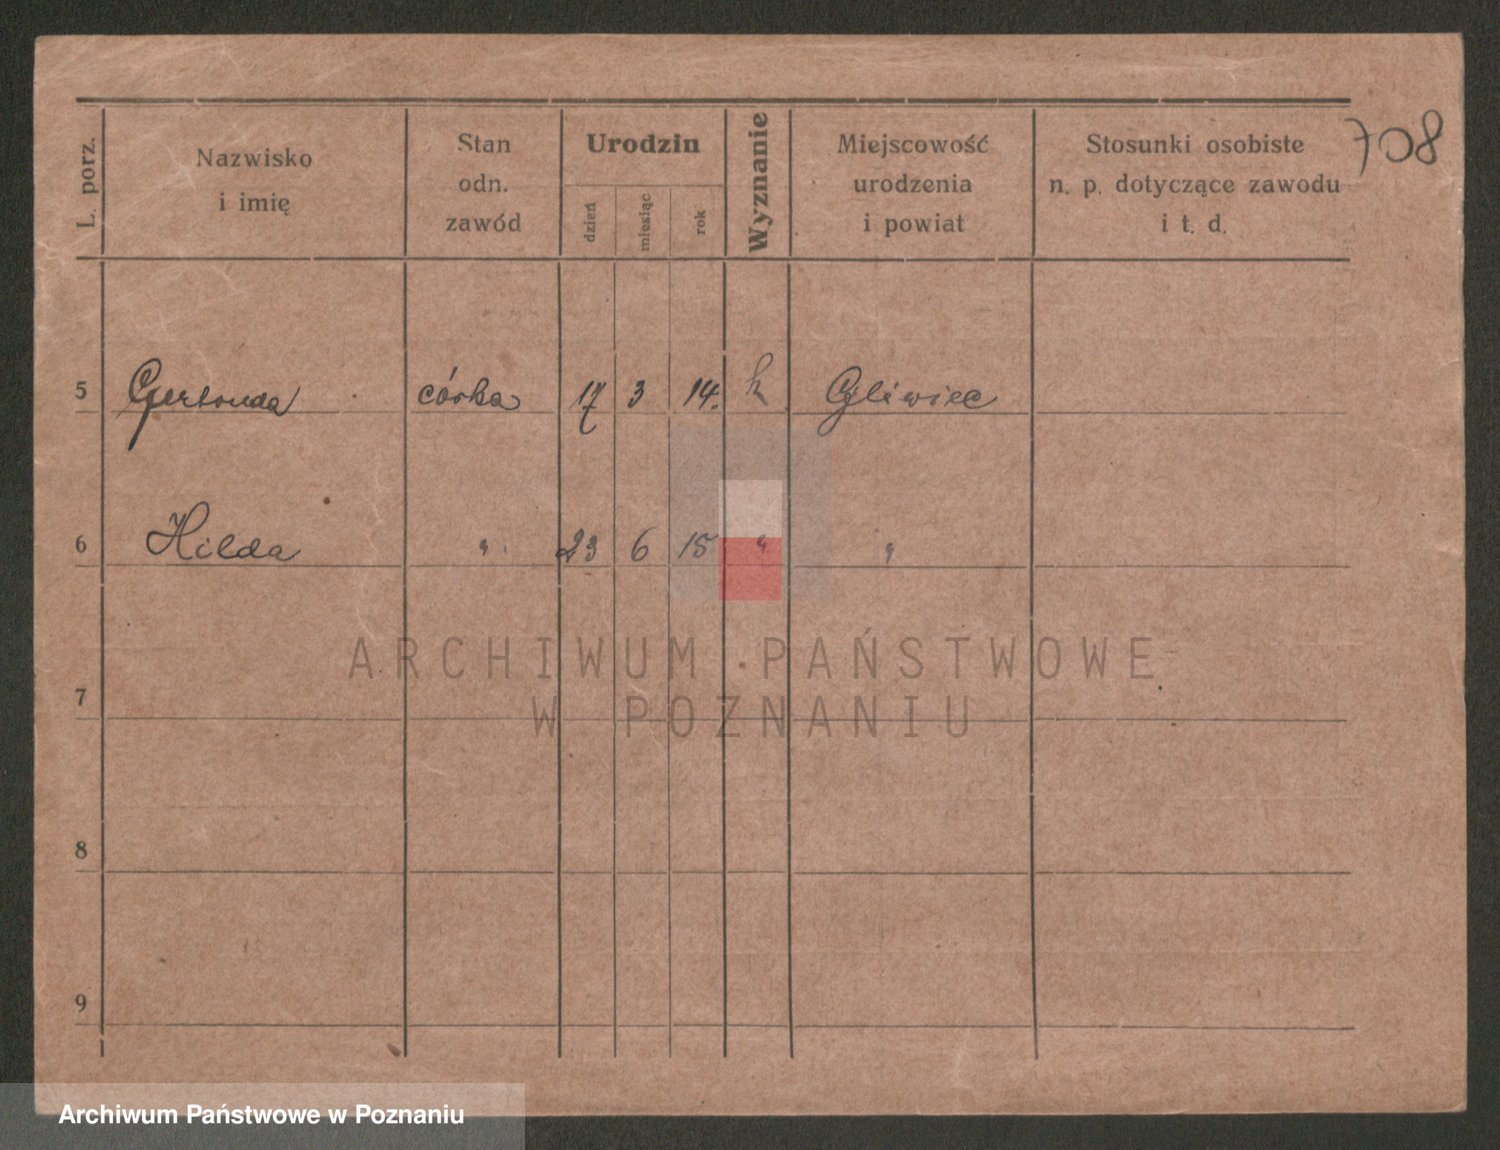 708
L. porz.
Nazwisko
i imię
Stan
odn.
zawód
Urodzin
dzień
miesiąc
rok
Wyznanie
Miejscowość
urodzenia
i powiat
Stosunki osobiste
n. p. dotyczące zawodu
i t. d.
5 Gertruda córka 17 3 14. k Gliwice
6 Hilda " 23 6 15 " "
ARCHIWUM PAŃSTWOWE
W POZNANIU
7
8
9
Archiwum Państwowe w Poznaniu